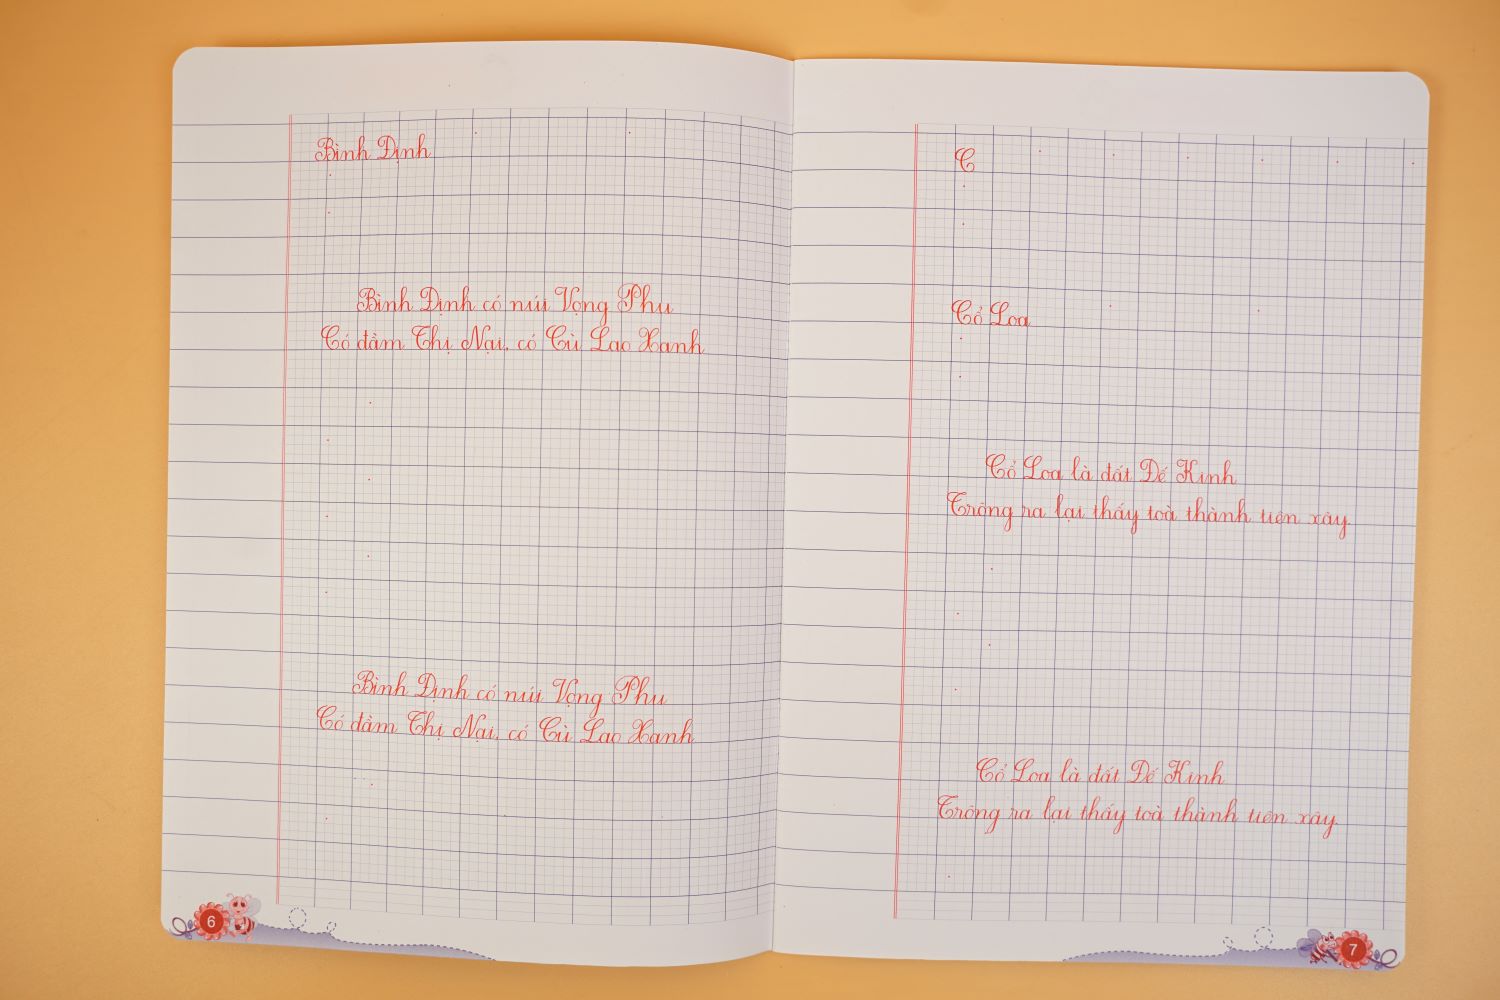 Bình Định
Bình Định có núi Vọng Phu
Có đầm Thị Nại, có Cù Lao Xanh
Bình Định có núi Vọng Phu
Có đầm Thị Nại, có Cù Lao Xanh
6
C
Cổ Loa
Cổ Loa là đất Đế Kinh
Trông ra lại thấy toà thành tiên xây.
Cổ Loa là đất Đế Kinh
Trông ra lại thấy toà thành tiên xây.
7